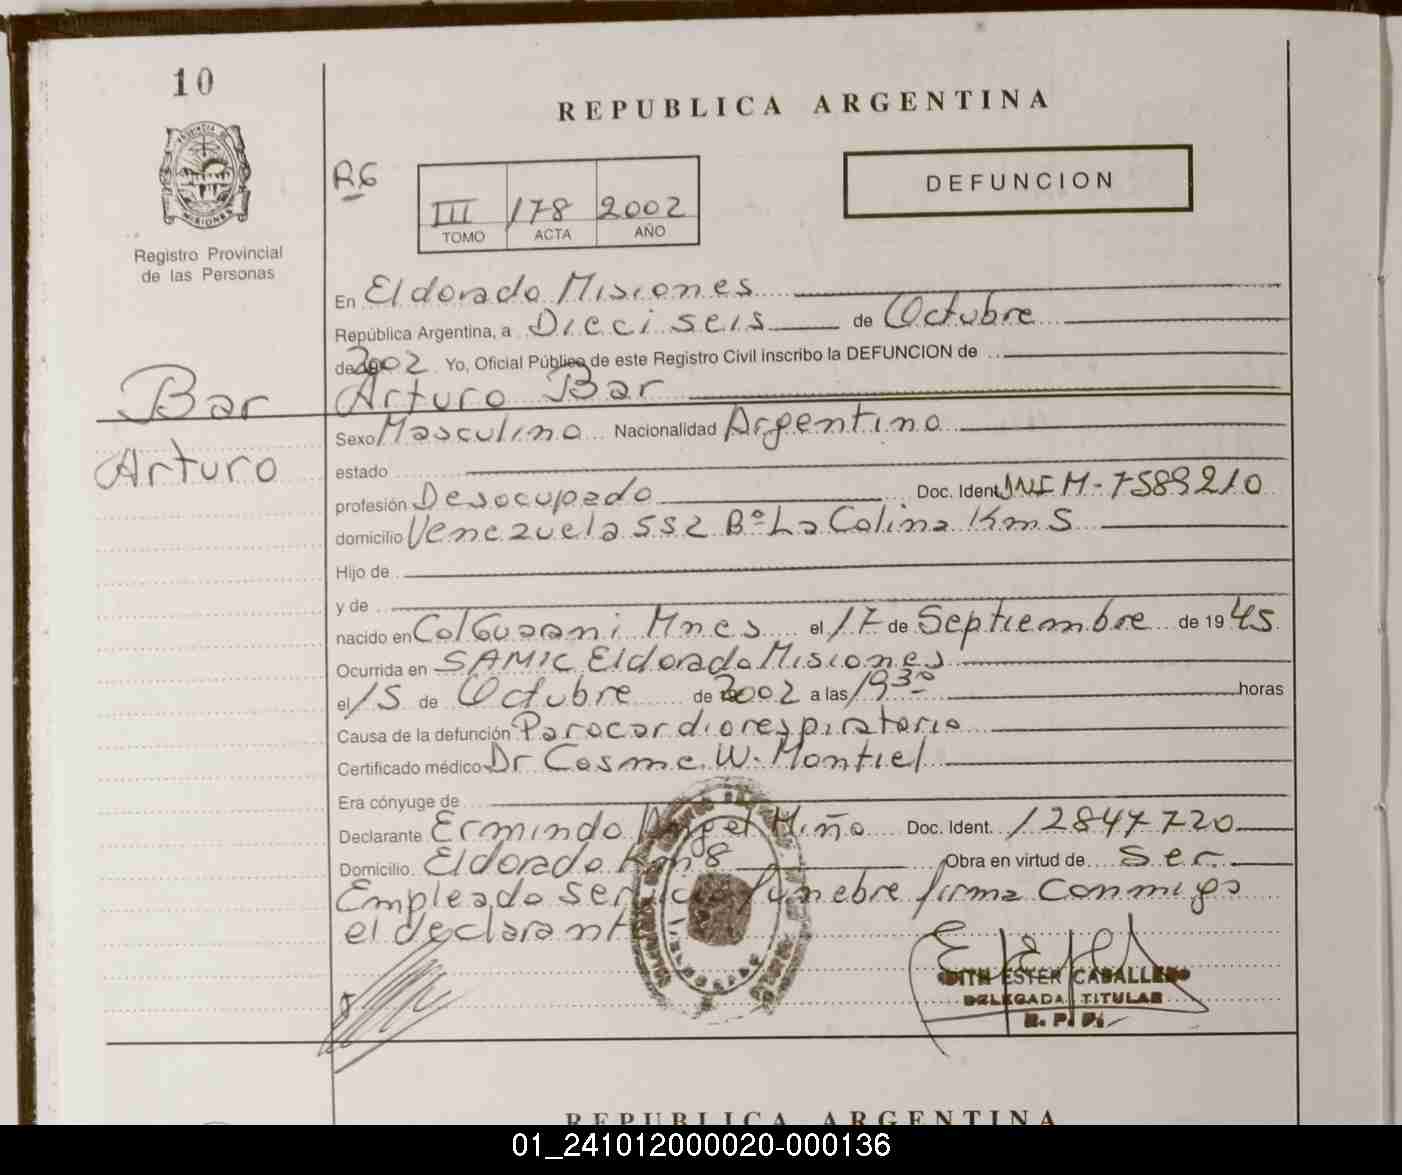 10
REPUBLICA ARGENTINA
R6
III 178 2002
TOMO ACTA AÑO
DEFUNCION
PROVINCIA DE MISIONES
Registro Provincial
de las Personas
En Eldorado Misiones
República Argentina, a Dieciseis de Octubre
de 2002 Yo, Oficial Público de este Registro Civil inscribo la DEFUNCION de
Bar Arturo Bar
Sexo Masculino Nacionalidad Argentino
Arturo
estado
profesión Desocupado Doc. Ident. M-7589210
domicilio Venezuela 552 Bº La Colina Km 5
Hijo de
y de
nacido en Col Guarani Mnes el 17 de Septiembre de 1945
Ocurrida en SAMIC Eldorado Misiones
el 15 de Octubre de 2002 a las 19 30 horas
Causa de la defunción Parocardiorespiratorio
Certificado médico Dr Cosme W. Montiel
Era cónyuge de
Declarante Ermindo Angel Miño Doc. Ident. 12847720
Domicilio. Eldorado Km 8 Obra en virtud de Ser
Empleado servicio funebre firma conmigo
el declarante
EDITH ESTER CABALLERO
DELEGADA TITULAR
R. P. P.
REPUBLICA ARGENTINA
01_241012000020-000136